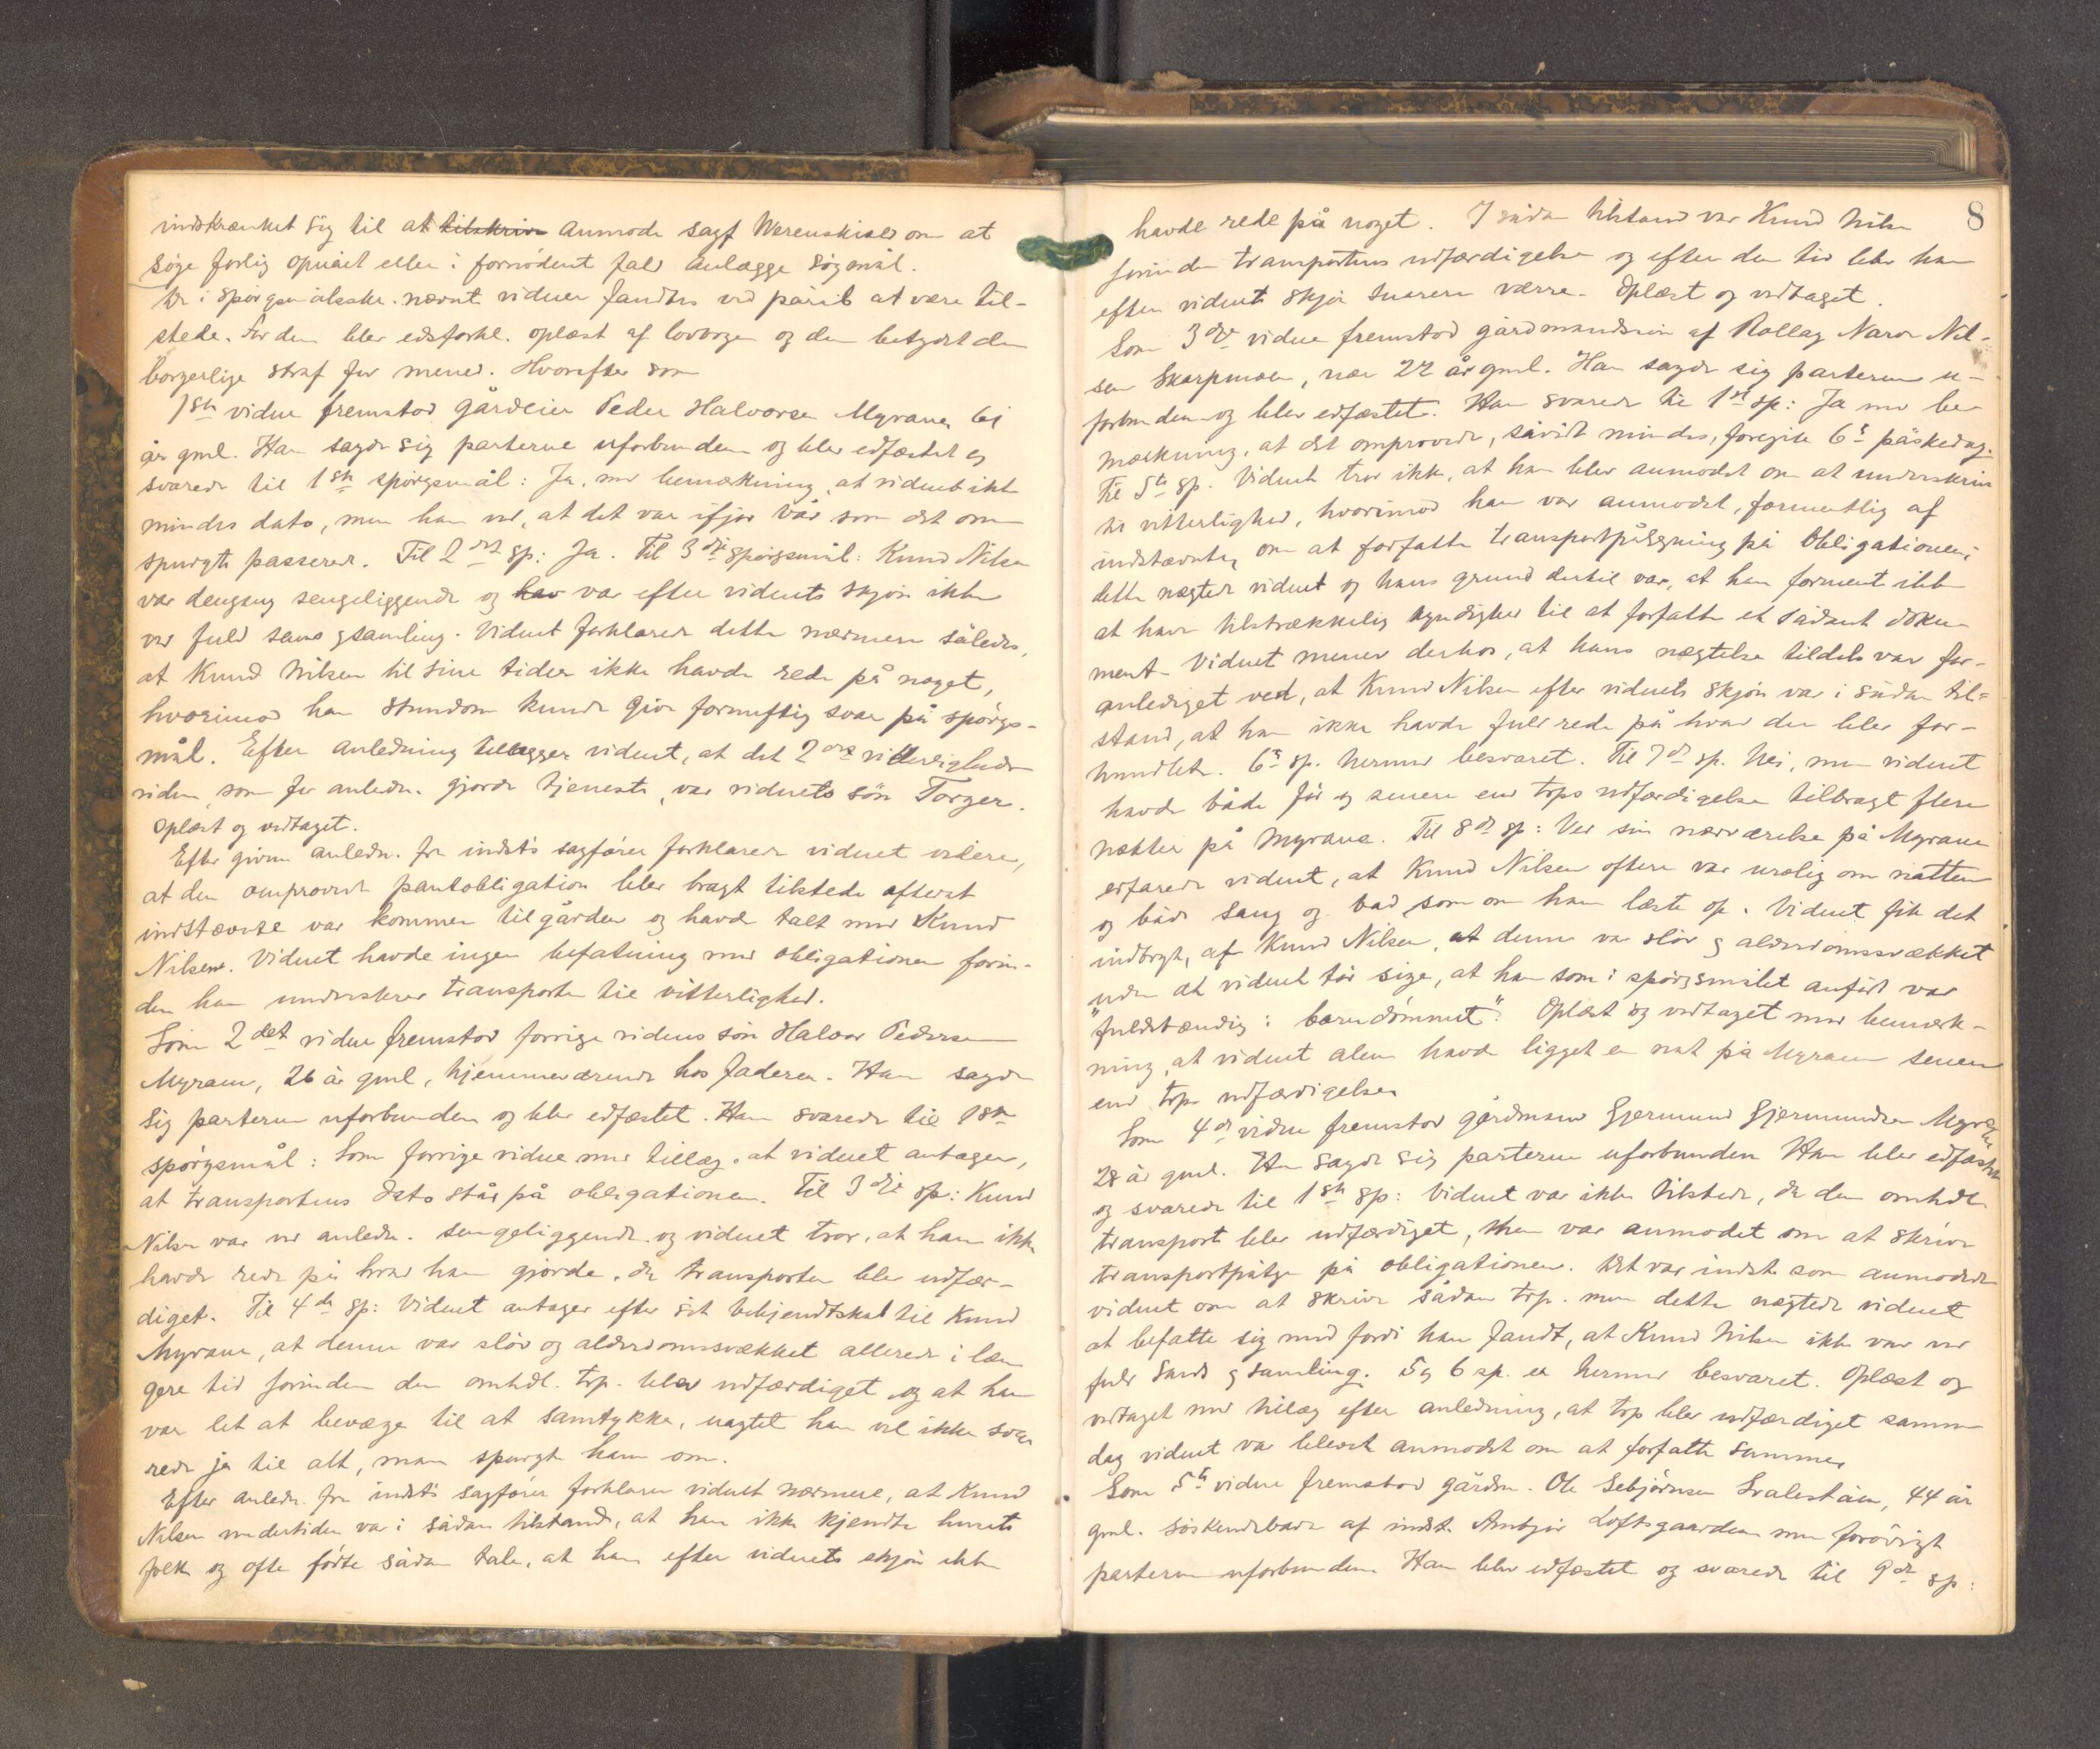 indskrænket sig til at tilskrive anmode sagf. Werenskiold om at
søge forlig opnået eller i fornødent fald anlægge søgsmål.
De i spørgsmålsskr. nævnte vidner fandtes ved påråb at være til-
stede. For dem blev edsforkl. oplæst af lovbogen og dem betydet den
borgerlige straf for mened. Hvorefter som
1ste vidne fremstod gårdeier Peder Halvorsen Myrane, 61
år gml. Han sagde sig parterne uforbunden og blev edfæstet og
svarede til 1ste spørgsmål: Ja, med bemærkning, at vidnet ikke
mindes dato, men han ved, at det var ifjor vår som det om-
spurgte passerede. Til 2det sp: Ja. Til 3die spørgsmål: Knud Nilsen
var dengang sengeliggende og han var efter vidnets skjøn ikke
ved fuld sans og samling. Vidnet forklarede dette nærmere således,
at Knud Nilsen til sine tider ikke havde rede på noget,
hvorimod han stundom kunde give fornuftig svar på spørgs-
mål. Efter anledning tillægger vidnet, at det 2det vitterligheds
vidne, som for anledn. gjorde tjeneste, var vidnets søn Torger.
Oplæst og vedtaget.
Efter given anledn. fra indst's sagfører forklarede vidnet videre,
at den omprovede pantobligation blev bragt tilstede efterat
indstævnte var kommen til gården og havde talt med Knud
Nilsen. Vidnet havde ingen befatning med obligationen forin-
den han underskrev transporten til vitterlighed.
Som 2det vidne fremstod forrige vidnes søn Halvor Pedersen
Myrane, 26 år gml, hjemmeværende hos faderen. Han sagde
sig parterne uforbunden og blev edfæstet. Han svarede til 1ste
spørgsmål: Som forrige vidne med tillæg, at vidnet antager,
at transportens dato står på obligationen. Til 3die sp: Knud
Nilsen var ved anledn. sengeliggende og vidnet tror, at han ikke
havde rede på hvad han gjorde, da transporten blev udfær-
diget. Til 4de sp: Vidnet antager efter sit bekjendtskab til Knud
Myrane, at denne var sløv og alderdomssvækket allerede i læn-
gere tid forinden den omhdl. trp. blev udfærdiget, og at han
var let at bevæge til at samtykke, uagtet han vel ikke sva-
rede ja til alt, man spurgte ham om.
Efter anledn. fra indst's sagfører forklarer vidnet nærmere, at Knud
Nilsen undertiden var i sådan tilstand, at han ikke kjendte husets
folk og ofte førte sådan tale, at han efter vidnets skjøn ikke
8
havde rede på noget. I sådan tilstand var Knud Nilsen
forinden transportens udfærdigelse og efter den tid blev han
efter vidnets skjøn snarere værre. Oplæst og vedtaget.
Som 3die vidne fremstod gårdmandssøn af Rollag Narve Nil-
sen Skarpmoen, nær 22 år gml. Han sagde sig parterne u-
forbunden og blev edfæstet. Han svarede til 1ste sp: Ja med be-
mærkning, at det omprovede, såvidt mindes, foregik 6te påskedag.
Til 5te sp. Vidnet tror ikke, at han blev anmodet om at underskrive
til vitterlighed, hvorimod han var anmodet, formentlig af
indstævnte, om at forfatte transportpåtegning på obligationen;
dette nægtede vidnet og hans grund dertil var, at han formente ikke
at have tilstrækkelig kyndighed til at forfatte et sådant doku-
ment. Vidnet mener derhos, at hans nægtelse tildels var for-
anlediget ved, at Knud Nilsen efter vidnets skjøn var i sådan til-
stand, at han ikke havde fuld rede på hvad der blev for-
handlet. 6te sp. hermed besvaret. Til 7de sp. Nei, men vidnet
havde både før og senere end trps udfærdigelse tilbragt flere
nætter på Myrane. Til 8de sp: Ved sin nærværelse på Myrane
erfarede vidnet, at Knud Nilsen oftere var urolig om natten
og både sang og bad, som om han læste op. Vidnet fik det
indtryk, af Knud Nilsen, at denne var sløv og alderdomssvækket
uden at vidnet tør sige, at han som i spørgsmålet anført var
"fuldstændig i barndommet". Oplæst og vedtaget med bemærk-
ning, at vidnet alene havde ligget en nat på Myrane senere
end trps udfærdigelse.
Som 4de vidne fremstod gårdmand Gjermund Gjermundsen Myra
28 år gml. Han sagde sig parterne uforbunden Han blev edfæstet
og svarede til 1ste sp: Vidnet var ikke tilstede, da den omhdl.
transport blev udfærdiget, men var anmodet om at skrive
transportpåtgn på obligationen. Det var indst. som anmodede
vidnet om at skrive sådan trp. men dette nægtede vidnet
at befatte sig med fordi han fandt, at Knud Nilsen ikke var ved
fuld sands og samling. 5 og 6 sp. er hermed besvaret. Oplæst og
vedtaget med tillæg efter anledning, at trp blev udfærdiget samme
dag vidnet var blevet anmodet om at forfatte samme.
Som 5te vidne fremstod gårdm. Ole Sebjørnsen Svalestøien, 44 år
gml. søskendebarn af indst. Ambjør Loftsgaarden men forøvrigt
parterne uforbunden. Han blev edfæstet og svarede til 9de sp: